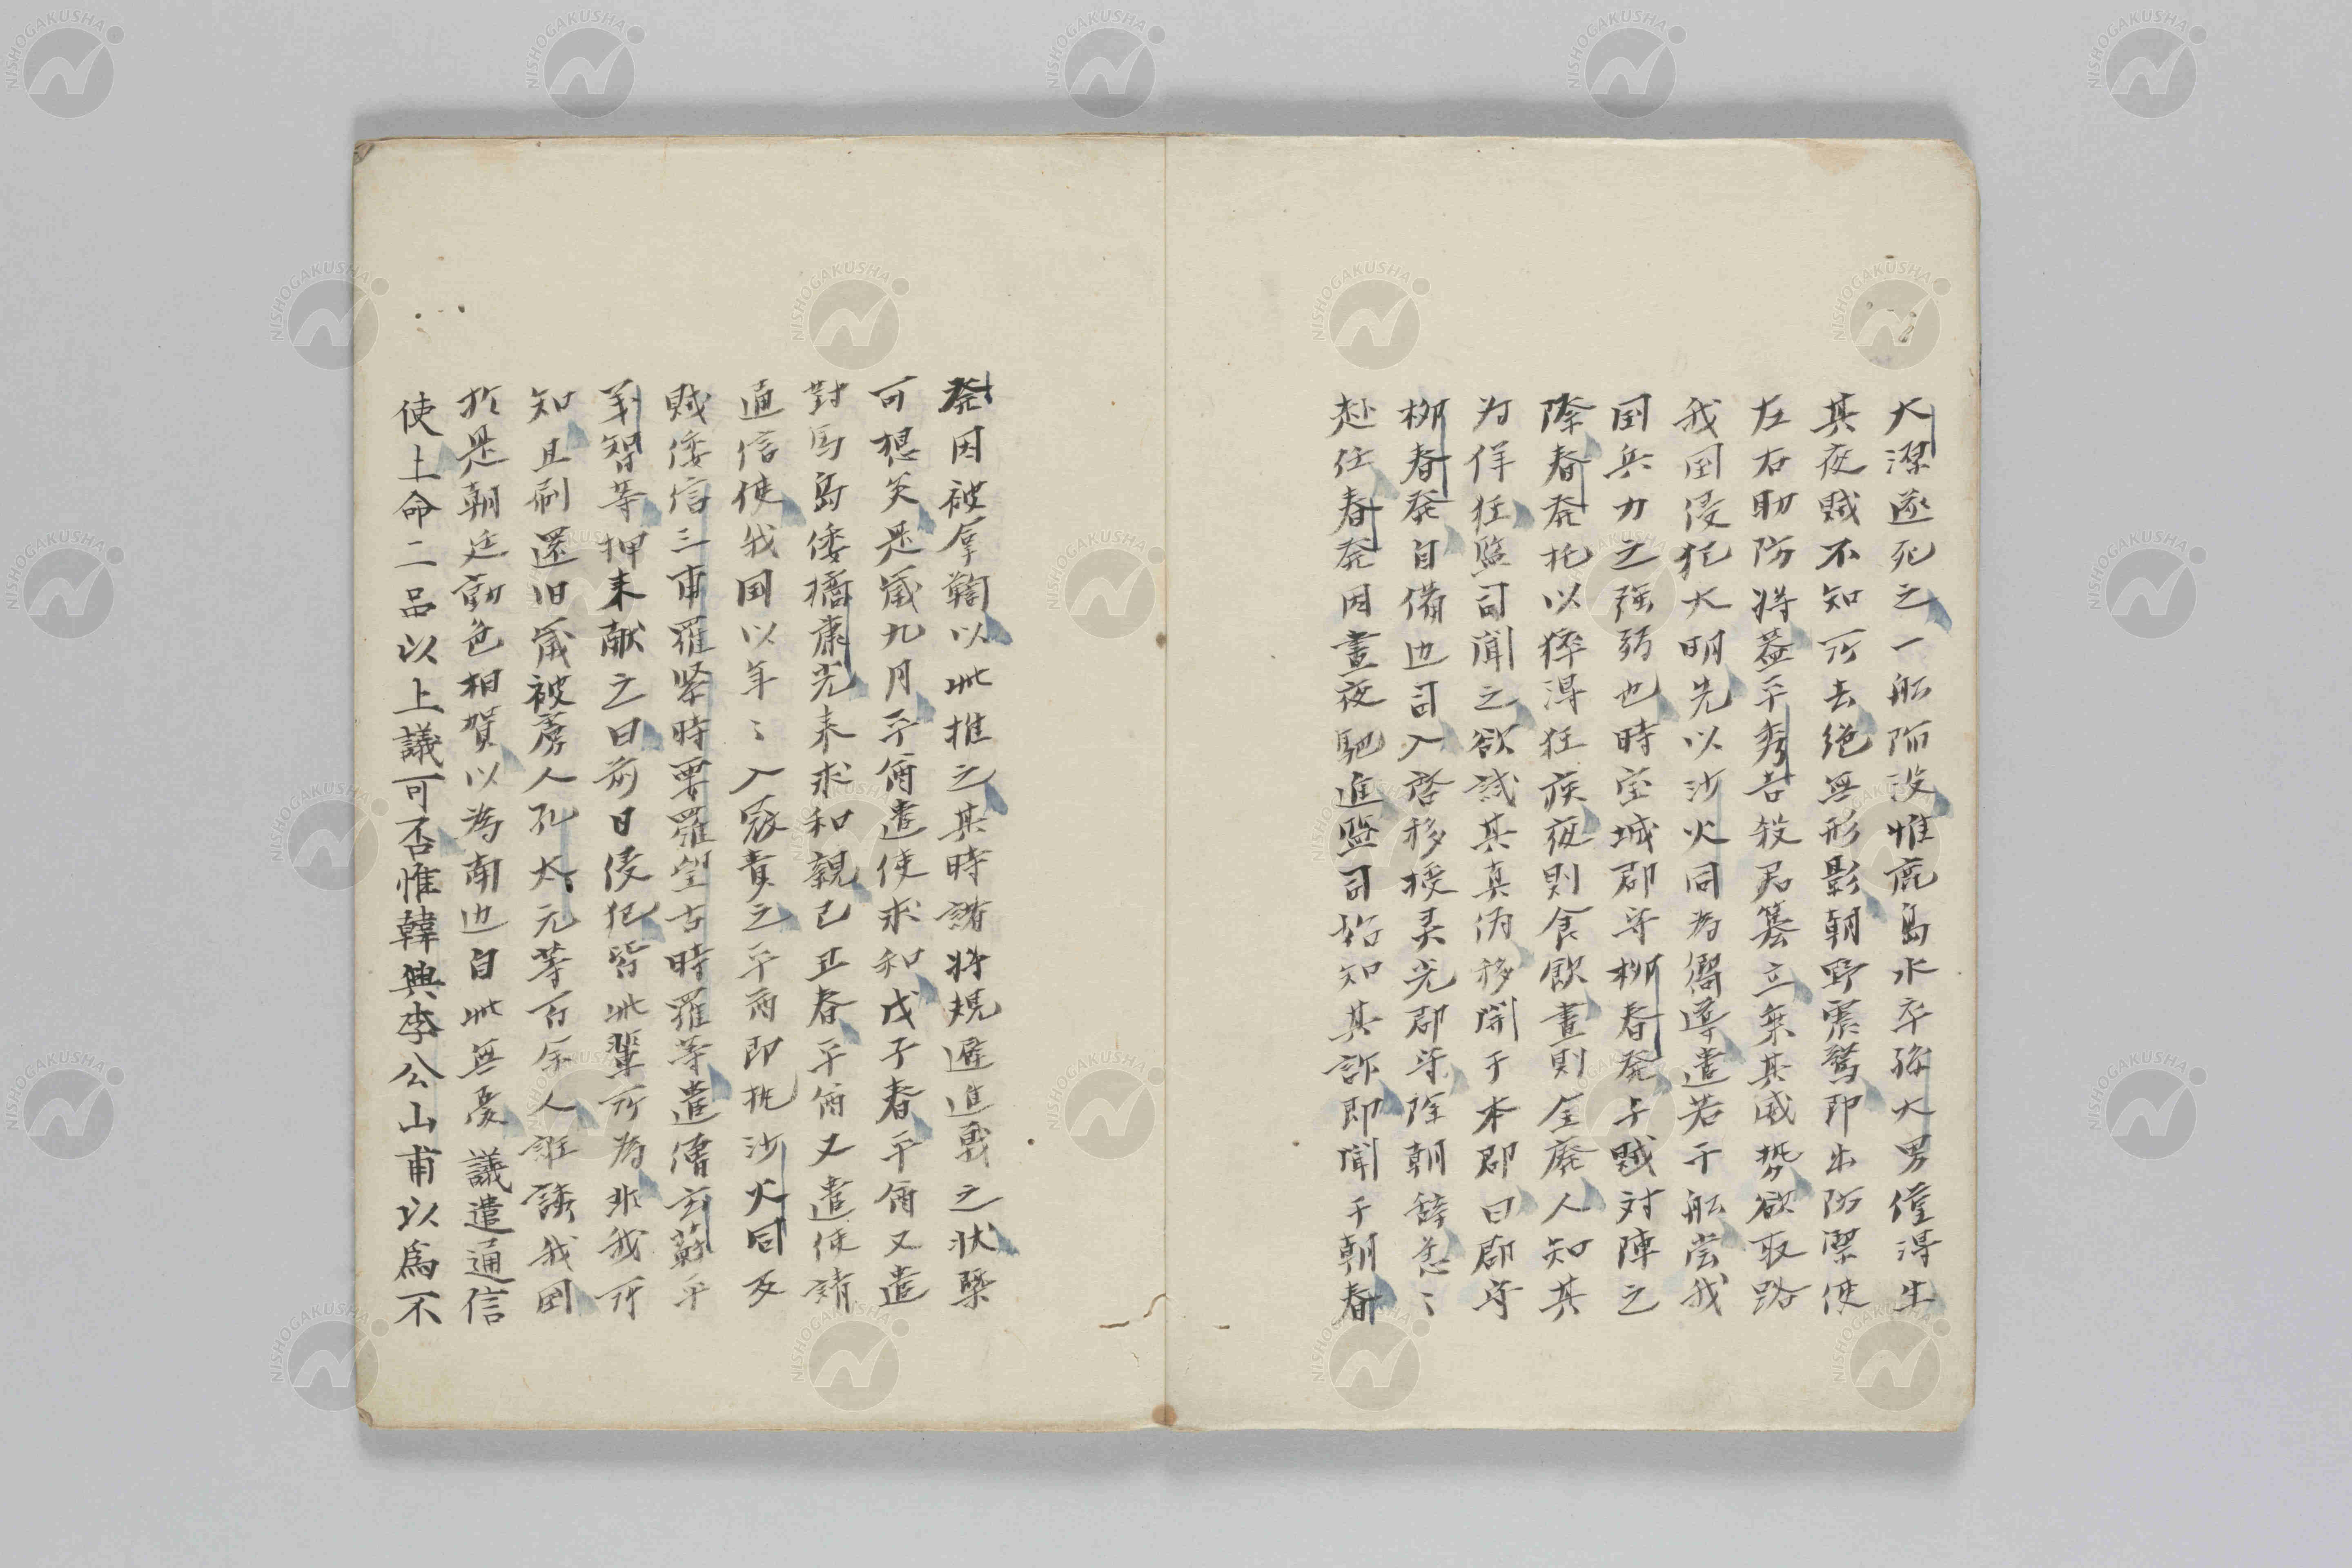 大深遂死之一舡陷没惟鹿島水卒孫大男僅得生
其夜賊不知所去絶無形影朝野震驚即出防禦使
左右助防將蓋平秀吉殺君簒立乘其威勢欲取路
我国侵犯大明先以沙火同為嚮導遣若干舡嘗我
国兵力之強弱也時宝城郡守柳春発与賊対陣之
際春発托以猝得狂疾夜則食飲晝則全廃人知其
为佯狂監司聞之欲試其真偽移関于本郡曰郡守
柳春発自備边司入啓移授灵光郡守除朝辞急〻
赴任春発因晝夜馳進監司始知其詐即聞于朝春
発因被拿鞫以此推之其時諸將規避進戰之状槩
可想矣是歳九月平酋遣使求和戊子春平酋又遣
對馬島倭橘康光来求和親己丑春平酋又遣使請
通信使我国以年〻入寇責之平酋即執沙火同及
賊倭信三甫羅緊時要羅望古時羅等遣僧玄蘇平
義智等押来献之曰前日侵犯皆此輩所為非我所
知且刷還旧歳被虜人孔太元等百余人誑誘我国
於是朝廷動色相賀以為南边自此無憂議遣通信
使上命二品以上議可否惟韓興李公山甫以爲不